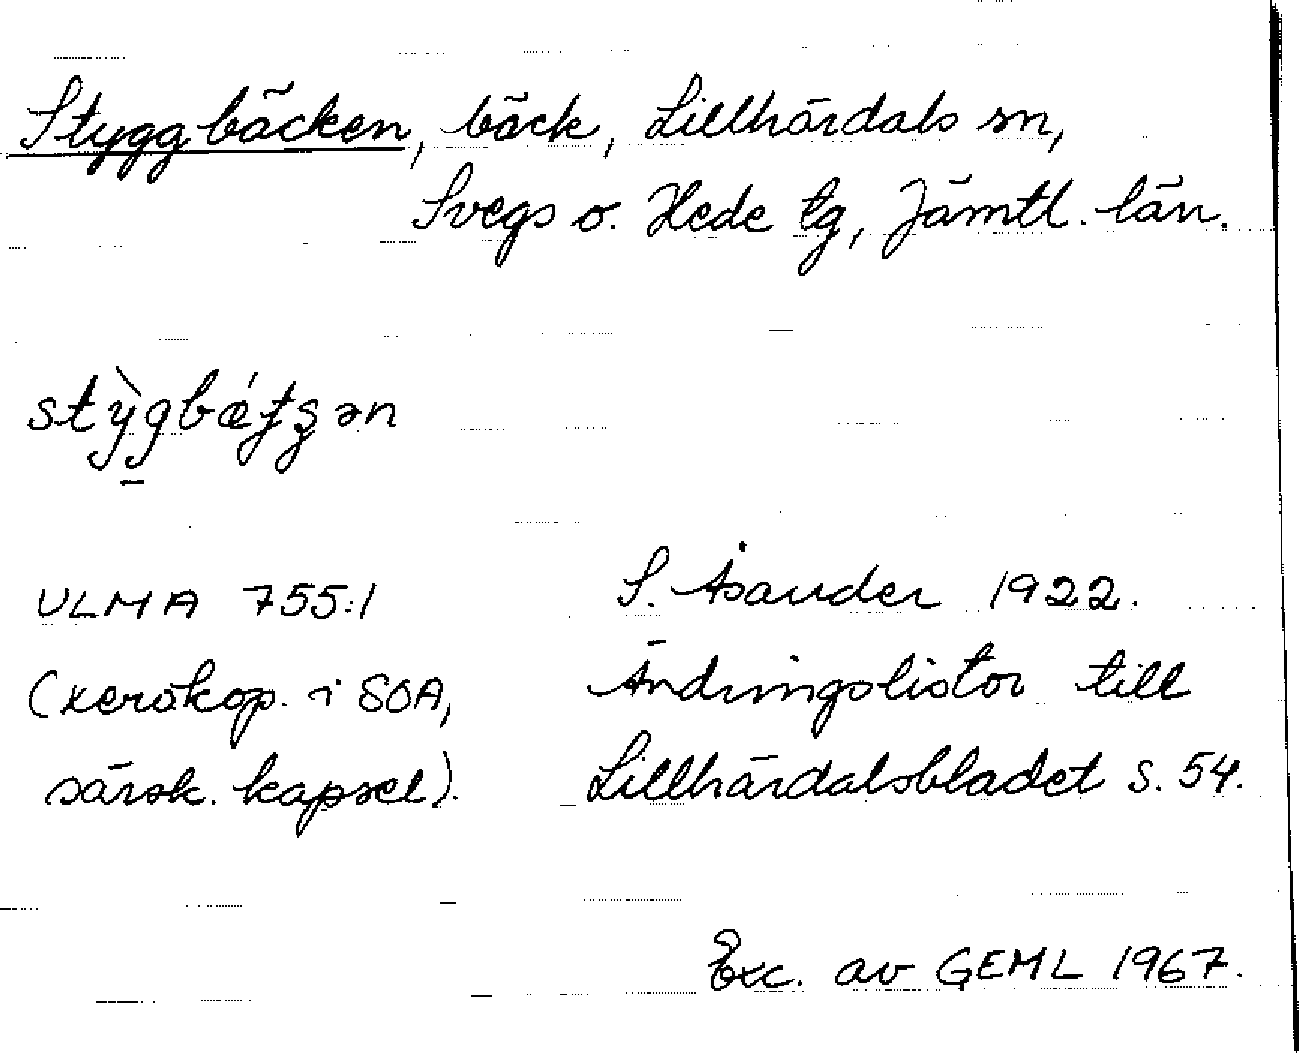 Styggbäcken, bäck, Lillhärdals sn,
Svegs o. Hede tg, Jämtl. län.
stỳgbǽʈʂən
ULMA 755:1
S. Åsander 1922.
(xerokop. i SOA,
Ändringslistor till
särsk. kapsel).
Lillhärdalsbladet s. 54.
Exc. av GEML 1967.